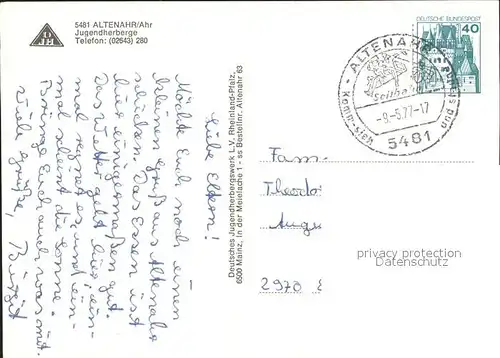 5481 ALTENAHR/Ahr
Jugendherberge
Telefon: (02643) 280
DJH
Liebe Eltern!
Möchte Euch noch einen
kleinen Gruß aus Altenahr
schicken. Das Essen ist
hier einigermaßen gut.
Das Wetter geht hier; ein-
mal regnet es und ein-
mal scheint die Sonne.
Bringe Euch auch was mit.
Viele Grüße, Birgit
Deutsches Jugendherbergswerk L.V. Rheinland-Pfalz,
6500 Mainz, In der Meielache 1 - ss Bestellnr. Altenahr 63
DEUTSCHE BUNDESPOST
40
ALTENAHR
Komm - sieh
und
-8.-5.77-17
5481
Fam.
Theodo
Auge
2970
privacy protection
Datenschutz